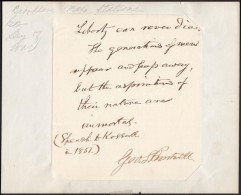 Liberty can never die.
The generations of men
appear and pass away,
but the aspirations of
their nature are
immortal.
(Speech to Kossuth
in 1851)
Geo. S. Boutwell